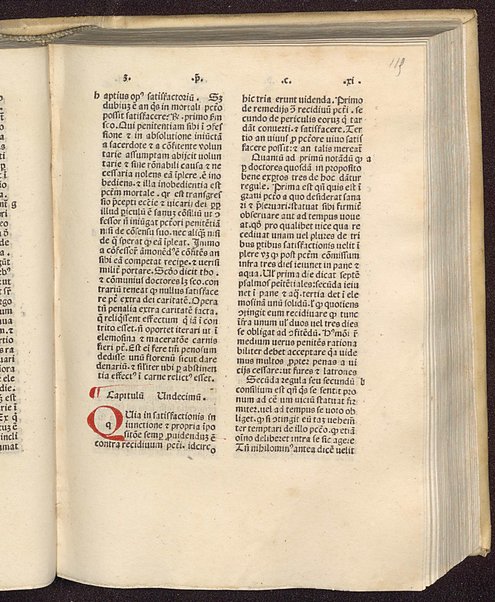 .3. .p̄. .c. .xi. 115
b aptius opꝰ satisfactoriū. Sꝫ
dubiūꝫ ē an qͥs in mortali pctō
possit satisfacere ꝶ. primo fin
sco. Qui penitentiam sibi ī ↄfes
sione ⁊ in absolutione iniūctā
a sacerdote ⁊ a cōfitente volun
tarie assumptam abijcit volun
tarie ⁊ sine rōnabili causa ⁊ ne
cessaria nolens eā īplere. ē ino
bediens. ⁊ illa inobedientia est
pctm̄ mortale.
sio p̄cepti eccīe ⁊ vicarii dei
fessor nī iniūgat pctōri penitētiā
nisi de cōsensu suo. nec aliqͥꝫ nisi
de ꝗ̄ sperat ꝙ eā īpleat. Immo
a cōfessore amonēdꝰ ē cōfitēs an
sibi eā competat recipe. ⁊ verisi
militer portare. Scḋo dicit tho.
⁊ cōmuniui doctores lꝫ sco. con
trariū teneat ꝙ nullus satisface
re pt̄ extra dei caritatē. Opera
tn̄ penalia extra caritatē facta.
trito esset. nī oportet iterari ut ī
elemosina ⁊ maceratōe carnis
fieri pt̄. Est ei fere tm̄ penosum
dedisse unū florenū sicut dare
denariū. ⁊ siliter ubi ꝑ abstinen
tia effectꝰ ī carne relictꝰ esset.
Capitulū Undecimū.
QUia in satisfactionis in
iunctione ⁊ propria īpo
sitōe semꝑ ꝓuidenduꝫ ē
contra recidiuum pcti. idcirco
hic tria erunt uidenda. Primo
de remedijs ꝯ̄ recidiuū pcti. se
cundo de periculis eorum ꝗ tar
dāt conuerti ⁊ satisfacere. Ter
tio an uiuus ꝑ pctōre uiuo satis
facere possit: ⁊ an talis mereat̄
Quantū ad primū notādū ꝙ a
ꝑ doctores quosdā in proposito
bene exp̄tos tres de hoc dātur
regule. Prima est qn̄ quis est ī
graui pctō a quo desiderat sana
ri ⁊ p̄seruari. statuat sibi firmit̄
obseruare aut ad tempus vouē
at. qō pro qualibet vice qua re
cediuat unam vel plures de tri
bus ptibus satisfactionis uelit ī
plere vꝫ ꝙ post pctm̄ cōmissum
infra tres dies ieiunet in pane ⁊
aqua. Ul' prima die dicat septē
psalmos penitētiales: secūda ieiu
net ī pane ⁊ aq̄. tertia det ī ele
mosina unū solidū. ł ꝙ quotiens
ↄtingit eum recidiuare ꝙ tunc
īfra unum ul' duos vel tres dies
se obligat ad ↄfitēdū. Hꝰmōi ē
medium uerus penitēs rationa
biliter debet acceptare ꝗa uide
mus multos ꝓpter penas a vi
cijs cessare: ut fures ⁊ latrones
Secūda regula seu secundū b
consilium est qn̄ qͥs se sentit pro
num ad cē um viciū statuat fir
mit̄. uel ad tempus se uoto ob
liget. ꝙ si ↄtingit eū taꝫ uehemē
ter temptari de illo pctō. ꝙ etiā
oīno deliberet intra se sic agere
Tn̄ nihilominꝰ antea dicē velit